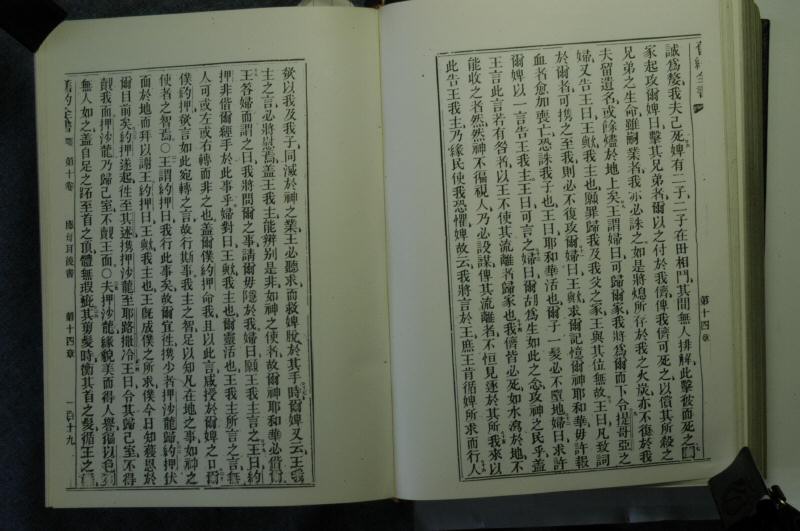 舊約全書
誠爲嫠我夫已死婢有二子二子在田相鬥其間無人排解此擊彼而死之
家起攻爾婢曰擊其兄弟者爾以之付於我儕俾我儕可死之以償其所殺之
兄弟之生命雖嗣業者我亦必誅之如是將熄所存於我之火炭亦不復於我
夫留遺名或餘燼於地上矣王謂婦曰可歸爾家我將爲爾而下令提哥亞之
婦又告王曰王歟我主也願罪歸我及我父之家王與其位無故王曰凡致詞
於爾者可攜之至我則必不復攻爾婦曰王歟求爾記憶爾神耶和華毋許報
血者愈加喪亡恐誅我子也王曰耶和華活也爾子一髮必不墮地婦曰求許
爾婢以一言告王我主王曰可言之婦曰爾胡爲生如此之念攻神之民乎蓋
王言此言若有咎者以王不使其流離者歸家也我儕皆必死如水瀉於地不
能收之者然然神不徧視人乃必設謀俾其流離者不恒見逐於其所我來以
此告王我主乃緣民使我恐懼婢故云我將言於王庶王肯循婢所求而行人
第十四章
欲以我及我子同滅於神之業王必聽求而救婢脫於其手時爾婢又云王
主之言必將慰焉蓋王我主能辨别是非如神之使者故爾神耶和華必偕爾
王答婦而謂之曰我將問爾之事請爾毋隱於我婦曰願王我主言之王曰約
押非偕爾經手於此事乎婦對曰王歟我主也爾靈活也王我主所言之言無
人可或左或右轉而非之也蓋爾僕約押命我且以此言咸授於爾婢之口爾
僕約押欲言如此宛轉之言故行斯事我主之智足以知凡在地之事如神之
使者之智焉○王謂約押曰我行此事矣故爾宜往攜少者押沙龍歸約押伏
面於地而拜以謝王約押曰王歟我主也王既成僕之所求僕今日知獲恩於
爾目前矣約押遂起往至其述攜押沙龍至耶路撒冷王曰令其歸己室不得
覿我面押沙龍乃歸己室不覿王面○夫押沙龍緣貌美而得人譽徧以色列
無人如之蓋自足之跖至首之頂體無瑕疵其剪髮時衡其首之髮循王之
舊約全書 第十卷 撒母耳後書 第十四章